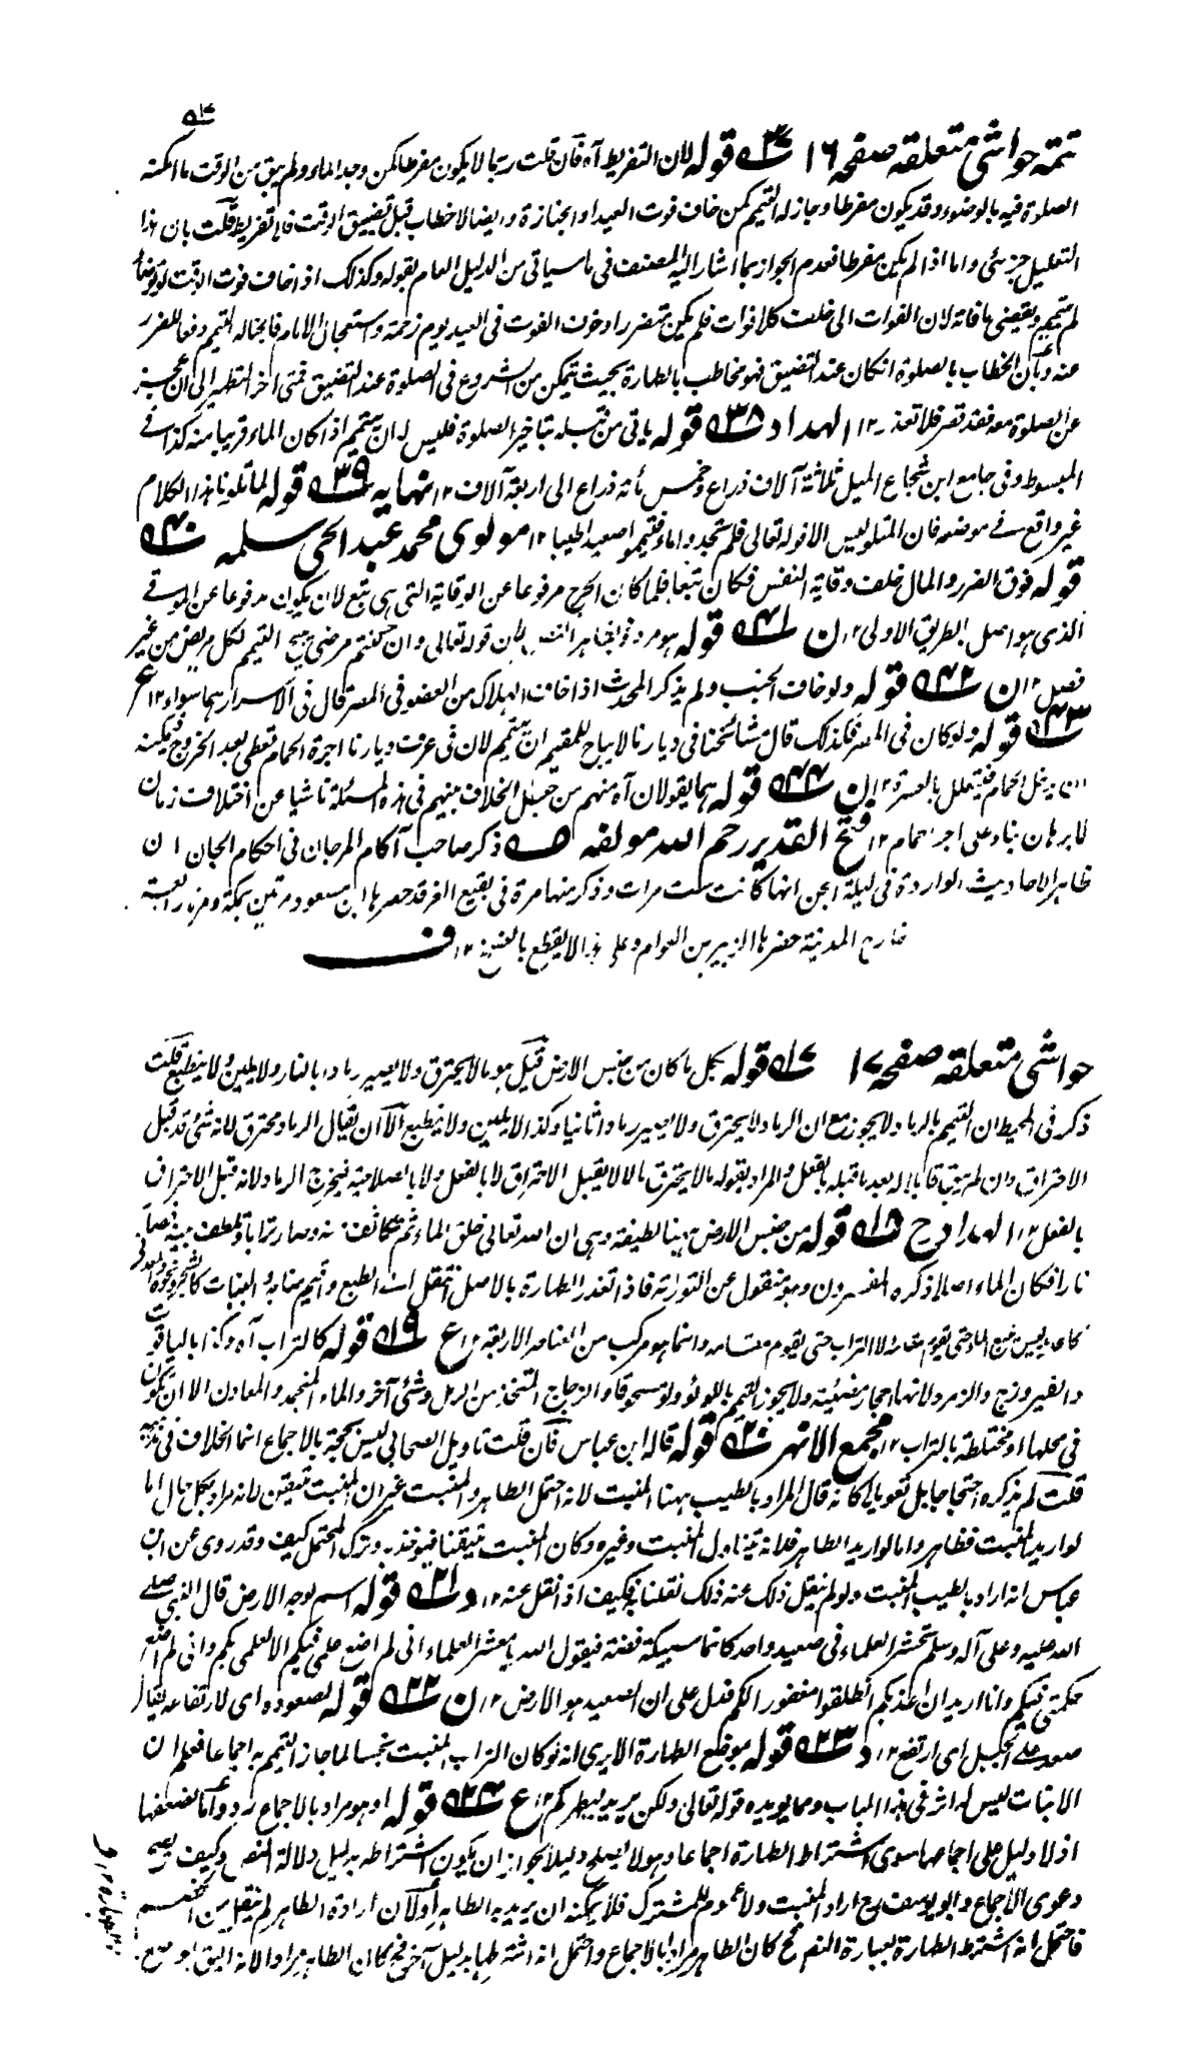 ٥٢
تتمه حواشی متعلقه صفحه ١٦ ٣٧ قوله لان التفريط آه فان قلت ربما لا يكون مفرطا كمن وجد الماء ولم يبق من الوقت ما امكنه
الصلوة فيه بالوضوء وقد يكون مفرطا وجاز له التيمم كمن خاف فوت العيد او الجنازة وايضا لا خطاب قبل تضييق الوقت فاين تفريط قلت بان هذا
التعليل جزئی واما اذا لم يكن مفرطا فعدم الجواز بما اشار اليه المصنف فی ما سياتی من الدليل العام بقوله وكذلك اذا خاف فوت الوقت لو توضأ
لم يتيمم ويقضی ما فاته لان الفوات الی خلف كلا فوات فلم يكن متضررا وخوف الفوت فی العيد يوم زحمة واستعجال الامام فابحنا له التيمم دفعا للضرر
عنه وبان الخطاب بالصلوة ان كان عند التضييق فهو مخاطب بالطهارة بحيث يتمكن من الشروع فی الصلوة عند التضييق فمتی اخر التطهير الی ان عجز
عن الصلوة معه فقد قصر فلا تعذر ١٢ الهداد ٣٨ قوله ياتی من قبله بتاخير الصلوة فليس له ان يتيمم اذا كان الماء قريبا منه كذا فی
المبسوط وفی جامع ابن شجاع الميل ثلاثة آلاف ذراع وخمس مأة ذراع الی اربعة آلاف ١٢ نهايه ٣٩ قوله لما تلونا هذا الكلام
غير واقع فی موضعه فان المتلو ليس الا قوله تعالی فلم تجدوا ماء فتيمموا صعيدا طيبا ١٢ مولوی محمد عبد الحی سلمه ٤٠
قوله فوق الضرر والمال خلف وقاية النفس فكان تبعا فلما كان الحرج مرفوعا عن الوقاية التی هی تبع لان يكون مدفوعا عن الموقی
الذی هو اصل بالطريق الاولی ١٢ ن ٤١ قوله هو مردود بظاهر النص بان قوله تعالی وان كنتم مرضی يبيح التيمم لكل مريض من غير
فصل ١٢ ن ٤٢ قوله ولو خاف الجنب ولم يذكر المحدث اذا خاف الهلاك من العضو فی المصر قال فی الاسرار هما سواء ١٢ ع
٤٣ قوله ولو كان فی المصر فكذلك قال مشائخنا فی ديارنا لا يباح للمقيم ان يتيمم لان فی عرف ديارنا اجرة الحمام تعطی بعد الخروج فيمكنه
ان يدخل الحمام فيتعلل بالعسرة ١٢ ن ٤٤ قوله هما يقولان آه منهم من جعل الخلاف بينهم فی هذه المسئلة ناشيا عن اختلاف زمان
لا برهان بناء علی اجر حمام ١٢ فتح القدير رحم الله مولفه ذكر صاحب آكام المرجان فی احكام الجان ان
ظاهر الاحاديث الواردة فی ليلة الجن انها كانت ست مرات وذكر منها مرة فی بقيع الغرقد حضرها ابن مسعود مرتين بمكة ومرة رابعة
خارج المدينة حضرها الزبير بن العوام وعلی هذا لا يقطع بالنسخ ١٢ ف
حواشی متعلقه صفحه ١٧ ١٧ قوله بكل ما كان من جنس الارض قيل هو ما لا يحترق ولا يصير رمادا بالنار ولا يلين ولا ينطبع قلت
ذكر فی المحيط ان التيمم بالرماد لا يجوز مع ان الرماد لا يحترق ولا يصير رمادا ثانيا وكذا لا يلين ولا ينطبع الا ان يقال الرماد محترق لانه شئ قد قبل
الاحتراق وان لم يبق قابلا له بعد ما قبله بالفعل والمراد بقوله ما لا يحترق ما لا يقبل الاحتراق لا بالفعل ولا بالصلاحية فيخرج الرماد لانه قبل الاحتراق
بالفعل ١٢ الهداد رح ١٨ قوله من جنس الارض هينا لطيفة وهی ان الله تعالی خلق الماء ثم تكاثف منه وصار ترابا وتلطف منه فصار
نارا فكان الماء اصلا ذكره المفسرون وهو منقول عن التورية فاذا تعذر الطهارة بالاصل انتقل الی الطبع واقيم مقامه والنبات كالشجر ونحوه والمعدنی
كالحديد ليس تبع الماء حتی يقوم مقامه ولا التراب حتی يقوم مقامه وانما هو مركب من العناصر الاربعة ١٢ ع ١٩ قوله كالتراب آه وكذا بالياقوت
والفيروزج والزمرد لانها احجار مضيئة ولا يجوز التيمم باللؤلؤ ولو مسحوقا والزجاج المتخذ من الرمل وشئ آخر والماء المنجمد والمعادن الا ان يكون
فی محلها او مختلطة بالتراب ١٢ مجمع الانهر ٢٠ قوله قاله ابن عباس فان قلت تاويل الصحابی ليس بحجة بالاجماع انما الخلاف فی مذهبه
قلت لم يذكره احتجاجا بل تقوية كانه قال المراد بالطيب ههنا المنبت لانه احتمل الطاهر والمنبت غير ان المنبت متيقن لانه مراد بكل حال اما
لو اريد المنبت فظاهر واما لو اريد الطاهر فلانه يتناول المنبت وغيره وكان المنبت متيقنا فيؤخذ به وترك المحتمل كيف وقد روی عن ابن
عباس انه اراد بالطيب المنبت ولو لم ينقل ذلك عنه ذلك نقلنا به فكيف اذا نقل عنه ١٢ د ٢١ قوله اسم لوجه الارض قال النبی صلی
الله عليه وعلی آله وسلم تحشر العلماء فی صعيد واحد كانها سبيكة فضة فيقول الله يا معشر العلماء انی لم اضع علمی فيكم الا لعلمی بكم وانی لم اضع
حكمتی فيكم وانا اريد ان اعذبكم انطلقوا مغفورا لكم فدل علی ان الصعيد هو الارض ١٢ ن ٢٢ قوله لصعوده ای لارتفاعه يقال
صعد علی الجبل ای ارتفع ١٢ د ٢٣ قوله موضع الطهارة الا يری انه لو كان التراب المنبت نجسا لما جاز التيمم به اجماعا فعلم ان
الانبات ليس له اثر فی هذا الباب ومما يؤيده قوله تعالی ولكن يريد ليطهركم ١٢ ع ٢٤ قوله او هو مراد بالاجماع
اذ لا دليل علی اجماعها سوی اشتراط الطهارة اجماعا وهو لا يصلح دليلا لجواز ان يكون اشتراطه بدليل دلالة النص وكيف يصح
دعوی الاجماع وابو يوسف رح اراد المنبت ولا عموم للمشترك فلا يمكنه ان يريد به الطاهر ارادة الطاهر لم ينقل من الخصم
فاحتمل انه اشترط الطهارة بعبارة النص فح كان الطاهر مرادا بالاجماع واحتمل انه اشترطها بدليل آخر فح كان الطاهر مرادا لانه اليق بموضع